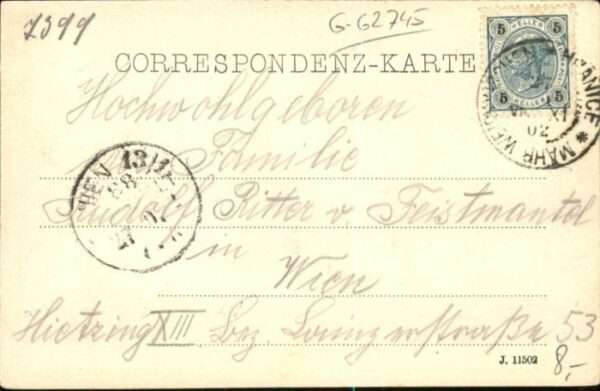 7399
G-62745
CORRESPONDENZ-KARTE
5 HELLER 5
5 HELLER 5
MÄHR. WEISSKIRCHEN * HRANICE
XI
02
Hochwohlgeboren
Familie
WIEN 13/1
88
Rudolf Ritter v. Feistmantel
in
Wien
Hietzing XIII Bez 53
J. 11502
8,-